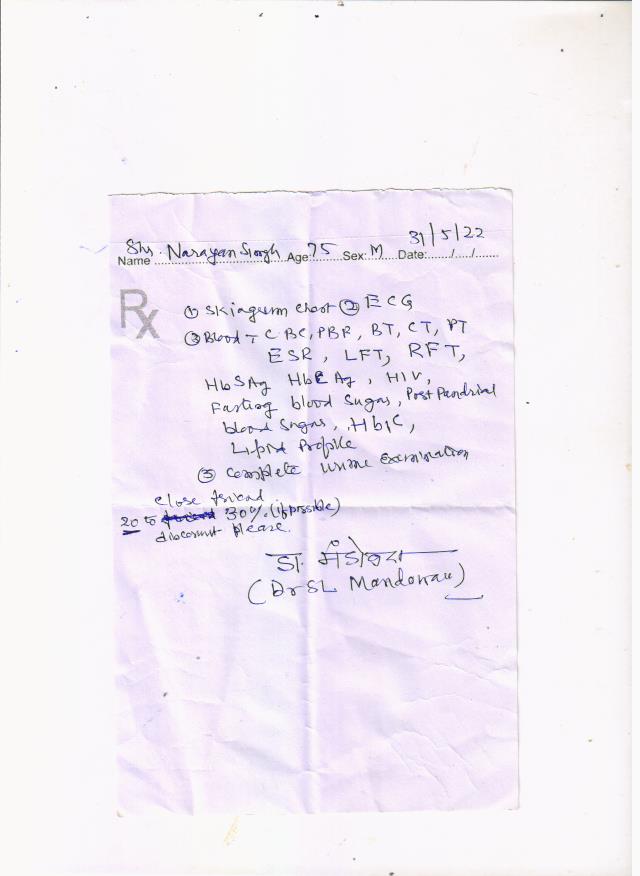 31/5/22
Shr. Narayan Singh 75 M
Name Age: Sex: Date:...../...../......
Rx
① Skiagram chest ② ECG
③ Blood - CBC, PBF, BT, CT, PT
ESR, LFT, RFT,
HbSAg HbEAg, HIV,
Fasting blood Sugar, Post Pandrial
blood Sugar, HbIC,
Lipid Profile
⑤ Complete Urine Examination
close friend
20 to 30% (if possible)
discount please.
डा.
(Dr SL Mandowau)